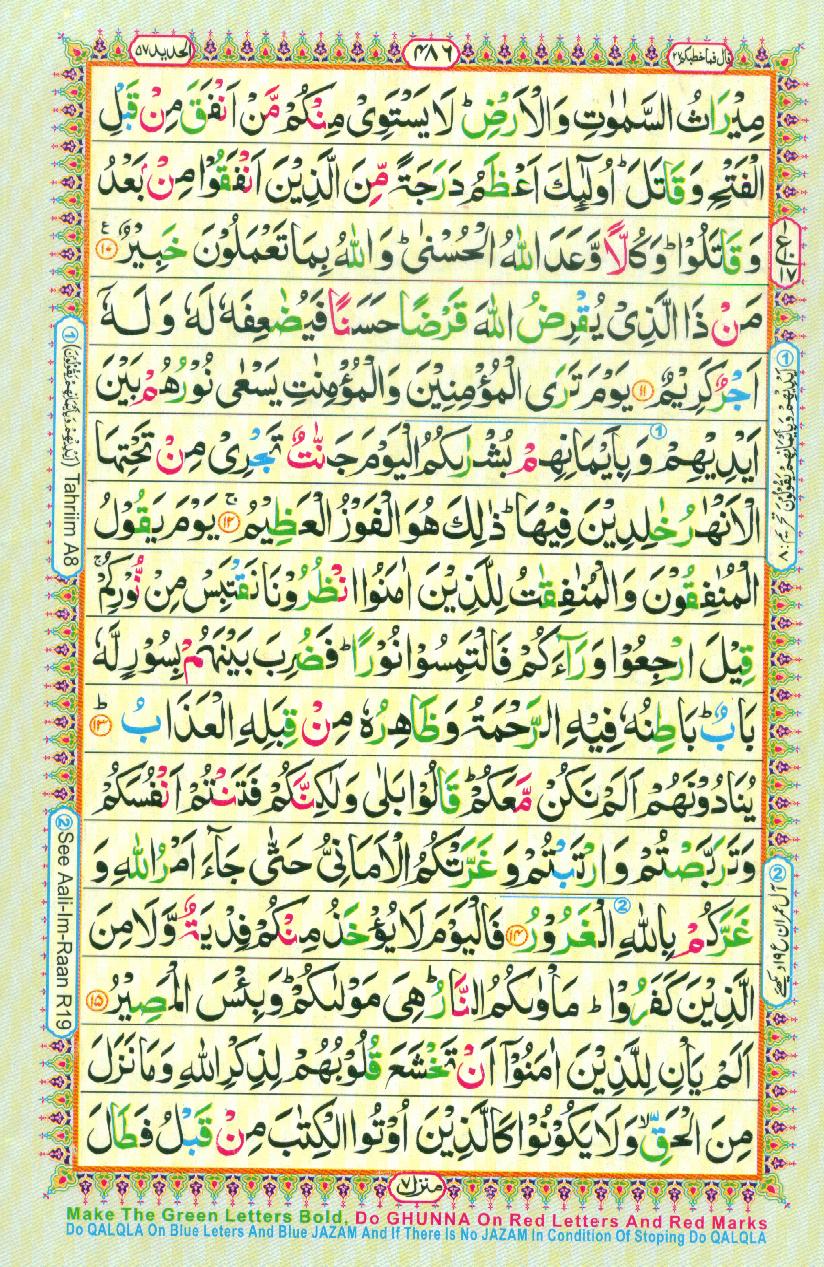 قال فما خطبكم ٢٧
٤٨٦
الحديد ٥٧
مِيْرَاثُ السَّمٰوٰتِ وَالْاَرْضِ ؕ لَا يَسْتَوِىْ مِنْكُمْ مَّنْ اَنْفَقَ مِنْ قَبْلِ
الْفَتْحِ وَقَاتَلَ ؕ اُولٰٓئِكَ اَعْظَمُ دَرَجَةً مِّنَ الَّذِيْنَ اَنْفَقُوْا مِنْۢ بَعْدُ
وَقَاتَلُوْا ؕ وَكُلًّا وَّعَدَ اللّٰهُ الْحُسْنٰى ؕ وَاللّٰهُ بِمَا تَعْمَلُوْنَ خَبِيْرٌ ۟ ١٠ ع
مَنْ ذَا الَّذِىْ يُقْرِضُ اللّٰهَ قَرْضًا حَسَنًا فَيُضٰعِفَهٗ لَهٗ وَلَهٗۤ
اَجْرٌ كَرِيْمٌ ١١ يَوْمَ تَرَى الْمُؤْمِنِيْنَ وَالْمُؤْمِنٰتِ يَسْعٰى نُوْرُهُمْ بَيْنَ
اَيْدِيْهِمْ وَبِاَيْمَانِهِمْ بُشْرٰىكُمُ الْيَوْمَ جَنّٰتٌ تَجْرِىْ مِنْ تَحْتِهَا
الْاَنْهٰرُ خٰلِدِيْنَ فِيْهَا ؕ ذٰلِكَ هُوَ الْفَوْزُ الْعَظِيْمُ ۚ ١٢ يَوْمَ يَقُوْلُ
الْمُنٰفِقُوْنَ وَالْمُنٰفِقٰتُ لِلَّذِيْنَ اٰمَنُوا انْظُرُوْنَا نَقْتَبِسْ مِنْ نُّوْرِكُمْ ۚ
قِيْلَ ارْجِعُوْا وَرَآءَكُمْ فَالْتَمِسُوْا نُوْرًا ؕ فَضُرِبَ بَيْنَهُمْ بِسُوْرٍ لَّهٗ
بَابٌ ؕ بَاطِنُهٗ فِيْهِ الرَّحْمَةُ وَظَاهِرُهٗ مِنْ قِبَلِهِ الْعَذَابُ ؕ ١٣
يُنَادُوْنَهُمْ اَلَمْ نَكُنْ مَّعَكُمْ ؕ قَالُوْا بَلٰى وَلٰكِنَّكُمْ فَتَنْتُمْ اَنْفُسَكُمْ
وَتَرَبَّصْتُمْ وَارْتَبْتُمْ وَغَرَّتْكُمُ الْاَمَانِىُّ حَتّٰى جَآءَ اَمْرُ اللّٰهِ وَ
غَرَّكُمْ بِاللّٰهِ الْغَرُوْرُ ١٤ فَالْيَوْمَ لَا يُؤْخَذُ مِنْكُمْ فِدْيَةٌ وَّلَا مِنَ
الَّذِيْنَ كَفَرُوْا ؕ مَاْوٰىكُمُ النَّارُ ؕ هِىَ مَوْلٰىكُمْ ؕ وَبِئْسَ الْمَصِيْرُ ١٥
اَلَمْ يَاْنِ لِلَّذِيْنَ اٰمَنُوْۤا اَنْ تَخْشَعَ قُلُوْبُهُمْ لِذِكْرِ اللّٰهِ وَمَا نَزَلَ
مِنَ الْحَقِّ ۙ وَلَا يَكُوْنُوْا كَالَّذِيْنَ اُوْتُوا الْكِتٰبَ مِنْ قَبْلُ فَطَالَ
منزل ٧
① (ايديهم وبايمانهم يقولون) Tahriim A8
② See Aali-Im-Raan R19
① ايديهم وبايمانهم يقولون تحريم : ٨
② آل عمران ع ١٩ دیکھیے
Make The Green Letters Bold, Do GHUNNA On Red Letters And Red Marks
Do QALQLA On Blue Leters And Blue JAZAM And If There Is No JAZAM In Condition Of Stoping Do QALQLA